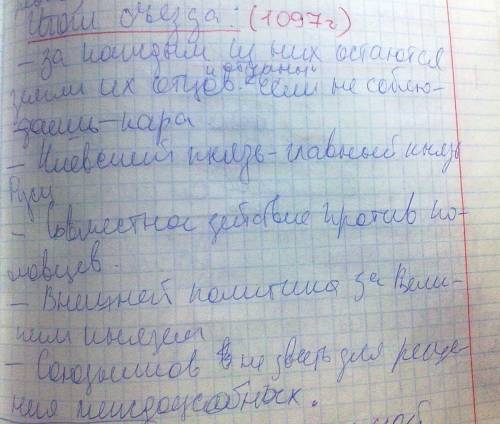 Итоги съезда: (1097г)
- за каждым из них остаются
земли их отцов. если не соблю-
даешь - кара
- Киевский князь - главный князь
Руси
- Совместное действие против по-
ловцев.
- Внешней политика за Вели-
ким князем
- Союзников не звать для реше-
ния междоусобных.